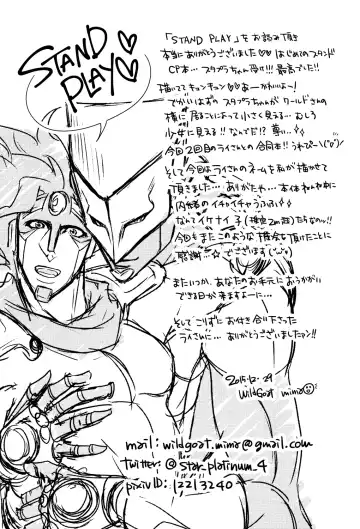 STAND
PLAY♡
「STAND PLAY」をお読み頂き
本当にありがとうございました♡♡はじめてのスタンド
CP本…スタプラちゃん受け!!!最高でした!!
描いててキュンキュン♡♡あーかわいよ〜!
でかいはずのスタプラちゃんがワールドさんの
横に居ることによって小さく見える…むしろ
少女に見える!!なんでだ!?尊い…
今回2回目のライさんとの合同本!!うれぴ〜
そして今回はライさんのネームを私が描かせて
頂きました…ありがたや…本体
内やきのイチャイチャうふふ
なんてイケナイ子
今回もまたこのような機会を頂けたことに
感謝…でございます
またいつか、あなたのお手元におうかがい
できる日が来ますよーに…
そしてこりずにお付き合い下さった
ライさんに…ありがとうございましたァン!!
2015.12.29
WildGoat mima
mail: wildgoat.mima@gmail.com
twitter: @star_platinum_4
pixiv ID: 12213240